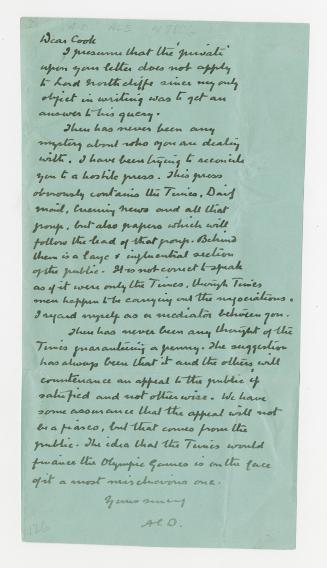 Dear Cook
I presume that the 'private'
upon your letter does not apply
to Lord Northcliffe since my only
object in writing was to get an
answer to his query.
There has never been any
mystery about who you are dealing
with. I have been trying to reconcile
you to a hostile press. This press
obviously contains the Times, Daily
Mail, Evening News and all that
group, but also papers which will
follow the lead of that group. Behind
them is a large & influential section
of the public. It is not correct to speak
as if it were only the Times, though Times
men happen to be carrying out the negociations.
I regard myself as a mediator between you.
There has never been any thought of the
Times guaranteeing a penny. The suggestion
has always been that it and the others, will
countenance an appeal to the public if
satisfied and not otherwise. We have
some assurance that the appeal will not
be a fiasco, but that comes from the
public. The idea that the Times would
finance the Olympic Games is on the face
of it a most mischievous one.
Yours sincerely
ACD.